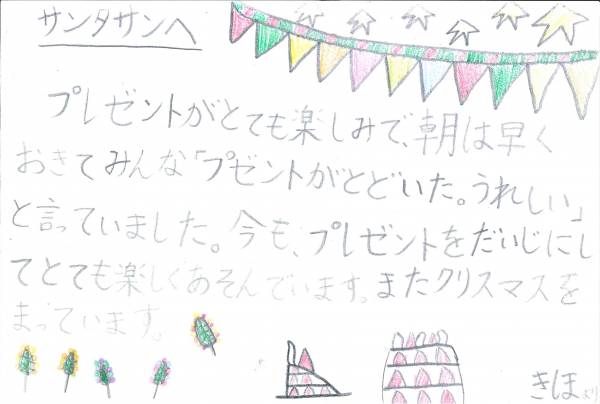 サンタサンへ
プレゼントがとても楽しみで、朝は早く
おきてみんな「プゼントがとどいた。うれしい」
と言っていました。今も、プレゼントをだいじにし
てとても楽しくあそんでいます。またクリスマスを
まっています。
きほより